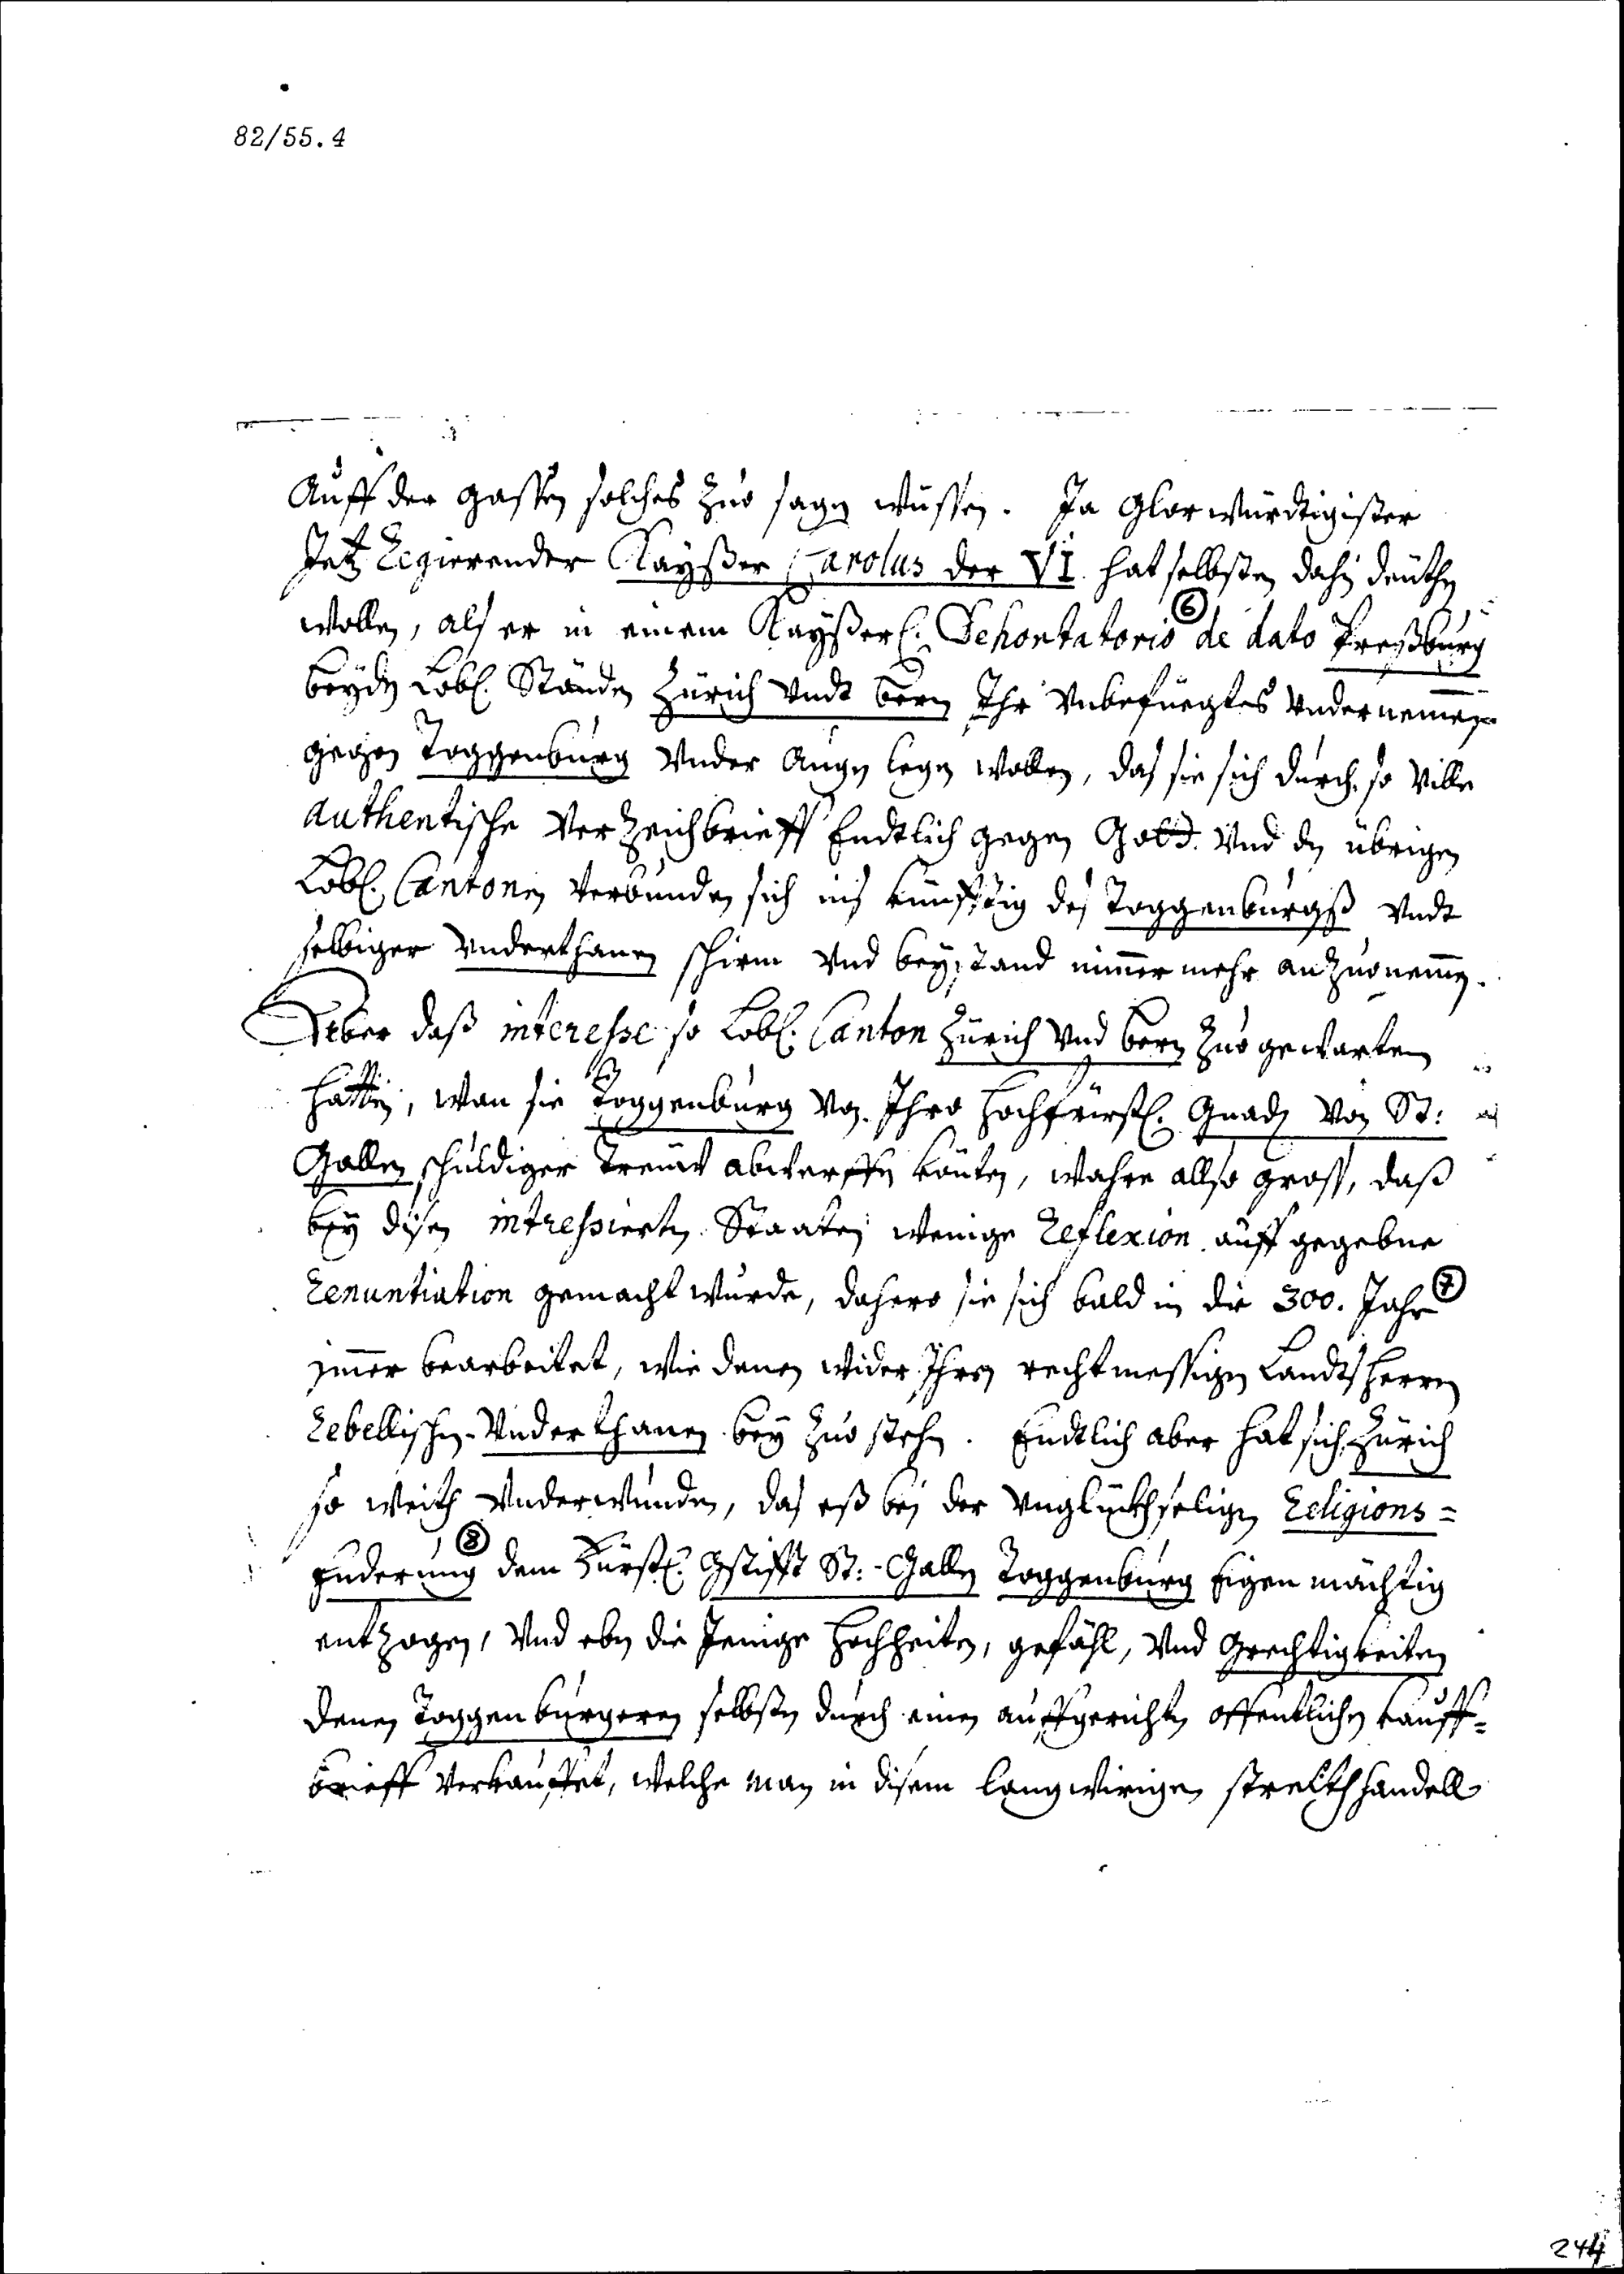 82/55.4
Auff der gassen solches zuo sagen wüssen. Ja Glorwürdtigister
Jetz Regierender Kaysser Carolus der VI. hat selbsten dahin deüthen
wollen, als er in einem Kaysserl. Dehortatorio ⑥ de dato Preßburg
beyden Lobl. Ständen Zürich undt Bern Ihr Unbefüegtes Undernemmen
gegen Toggenburg Under Augen legen wollen, das sie sich durch so Ville
authentische Verzeichbrieff Endtlich gegen Gott. Und den übrigen
Lobl. Cantonen Verbunden sich ins künfftig des Toggenburgß Undt
selbiger Underthanen schirm Und beystand nimmermehr anzuonemmen.
Aber daß interesse so Lobl. Canton Zürich Und Bern zuo gewarten
hatten, wan sie Toggenburg Von Ihro Hochfürstl. Gnaden Von St:
Gallen schuldiger Treüw abwerffen könten, wahre allso gross, daß
bey disen intressierten Staaten wenige Reflexion auff gegebne
Renuntiation gemacht wurde, dahero sie sich bald in die 300. Jahr ⑦
jmmer bearbeitet, wie denen wider Ihren rechtmessigen Landtsherren
Rebellischen Underthanen bey zuo stehen. Endtlich aber hat sich Zürich
so weith Underwunden, das eß bei der Unglückhseligen Religions=
Enderung ⑧ dem Fürstl. Gstifft St:-Gallen Toggenburg Eigenmächtig
entzogen, Und eben die Jenige Hochheiten, gefähl, Und Grechtigkeiten
denen Toggenburgeren selbsten durch einen auffgerichten offentlichen kauff=
brieff Verkauffet, welche man in disem langwirigen streithhandell
244